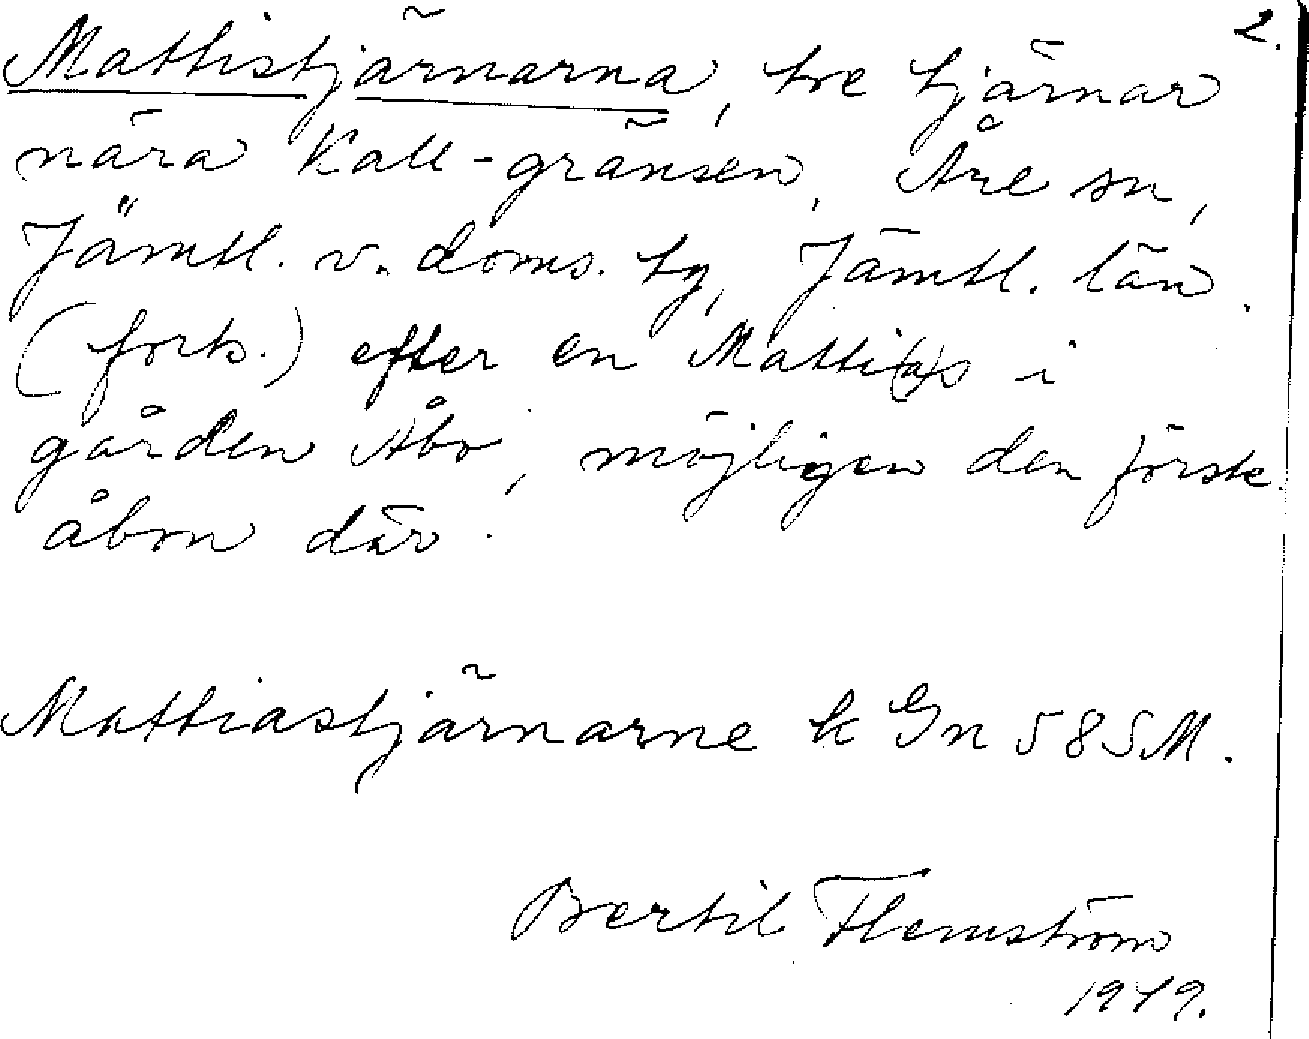 2.
Mattistjärnarna, tre tjärnar
nära Kall-gränsen, Åre sn,
Jämtl. v. doms. tg, Jämtl. län.
(forts.) efter en Matti(a)s i
gården Åbo, möjligen den förste
åbon där.
Mattiastjärnarne k Gn 58 SM.
Bertil Flemström
1949.